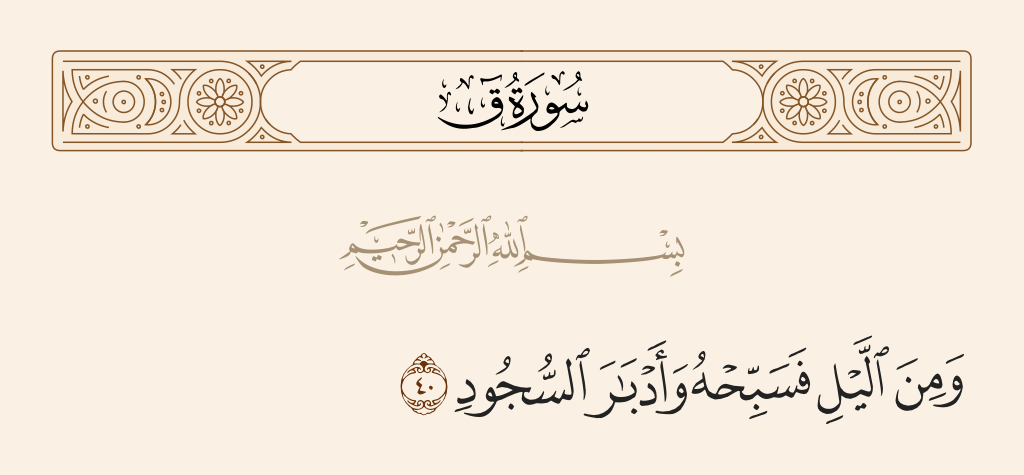 سُورَةُ قٓ
بِسْمِ ٱللَّهِ ٱلرَّحْمَٰنِ ٱلرَّحِيمِ
وَمِنَ ٱلَّيْلِ فَسَبِّحْهُ وَأَدْبَٰرَ ٱلسُّجُودِ ٤٠